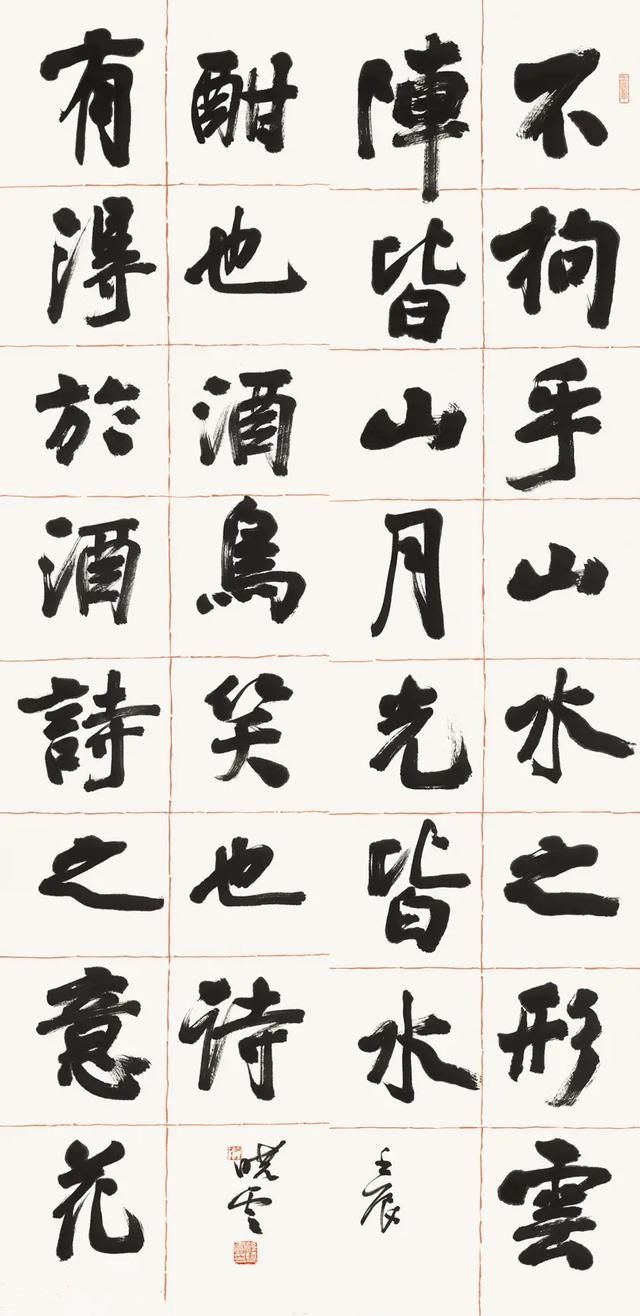 不拘乎山水之形雲
陣皆山月光皆水
壬辰
有得於酒詩之意花
酣也酒鳥笑也诗
晓雲